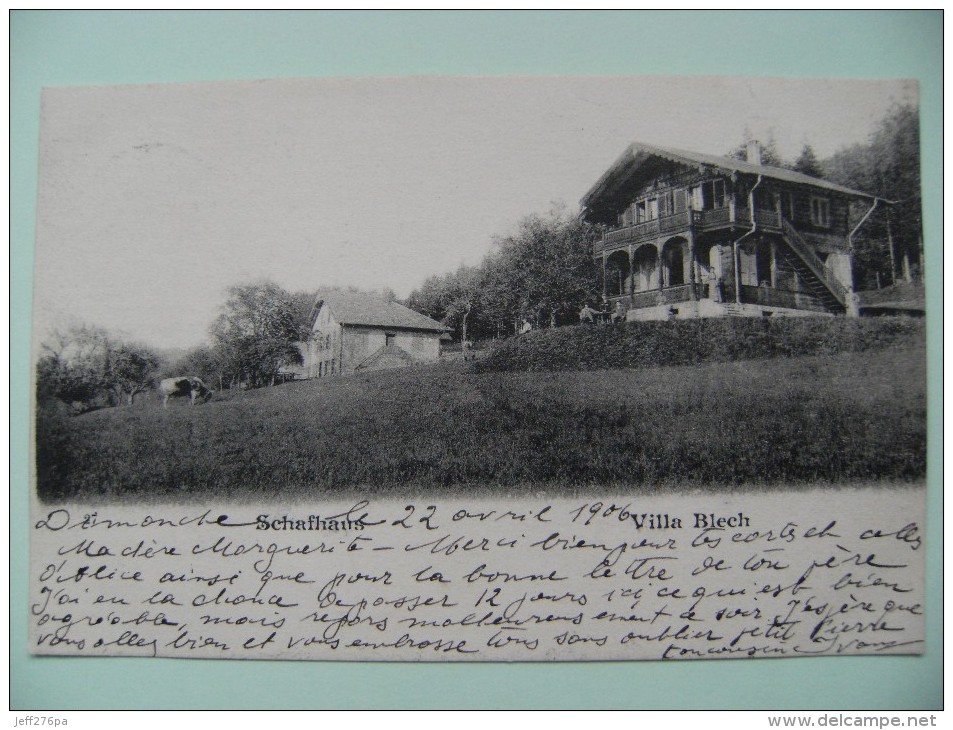 Dimanche Schafhaus le 22 avril 1906 Villa Blech
Ma chère Marguerite - Merci bien pour tes cartes et celles
d'Alice ainsi que pour la bonne lettre de ton père
J'ai eu la chance de passer 12 jours ici ce qui est bien
agréable, mais repars malheureusement ce soir. J'espère que
vous allez bien et vous embrasse tous sans oublier petit Pierre
ton cousin
jeff276pa
www.delcampe.net